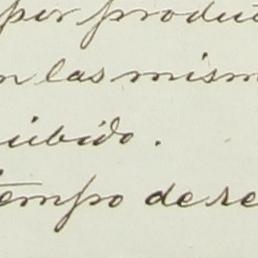 por produc
n las mism
uibido.
tempo de se